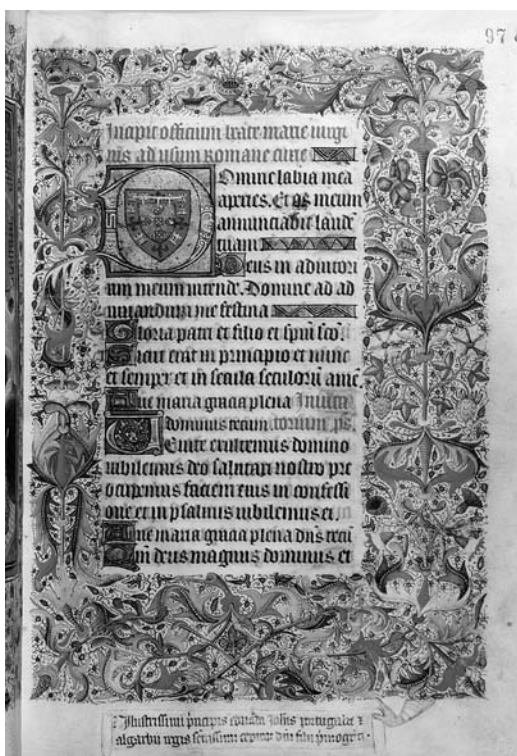 97
Incipit officium beate marie virgi
nis ad usum Romane curie
Domine labia mea
aperies. Et os meum
annunciabit laude
tuam
Deus in adiutori
um meum intende. Domine ad ad
iuvandum me festina
Gloria patri et filio et spiritui sco.
Sicut erat in principio et nunc
et semper et in secula seculorū amē.
Ave maria gracia plena Invita
dominus tecum torium. ps.
Venite exultemus domino
iubilemus deo salutari nostro pre
ocupemus faciem eius in confessi
one et in psalmis iubilemus ei.
Ave maria gracia plena dn̄s tecū
Qm̄ deus magnus dominus et
Illustrissimi principis Johīs portugalie
algarbii regis filii primogeniti